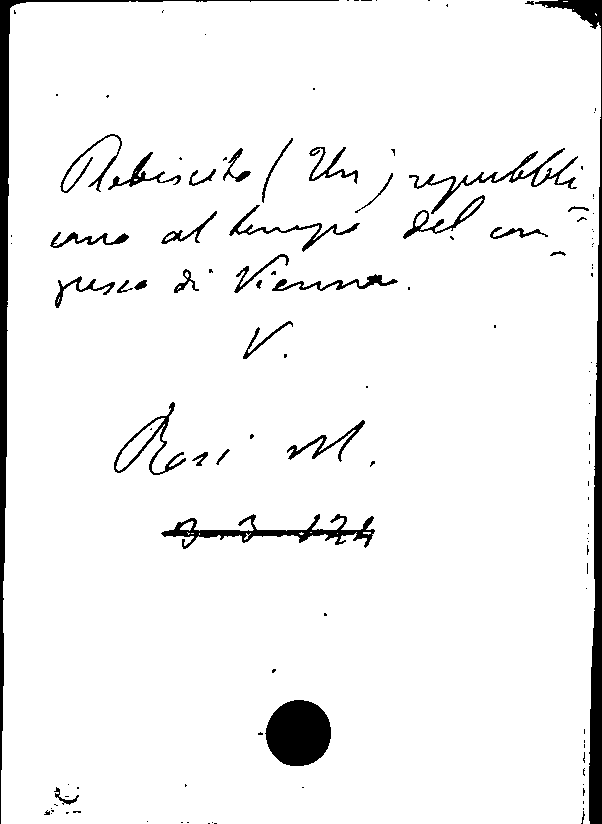 Plebiscito (Un) repubbli=
cano al tempo del con=
gresso di Vienna.
V.
Rosi M.
3. 3. 124